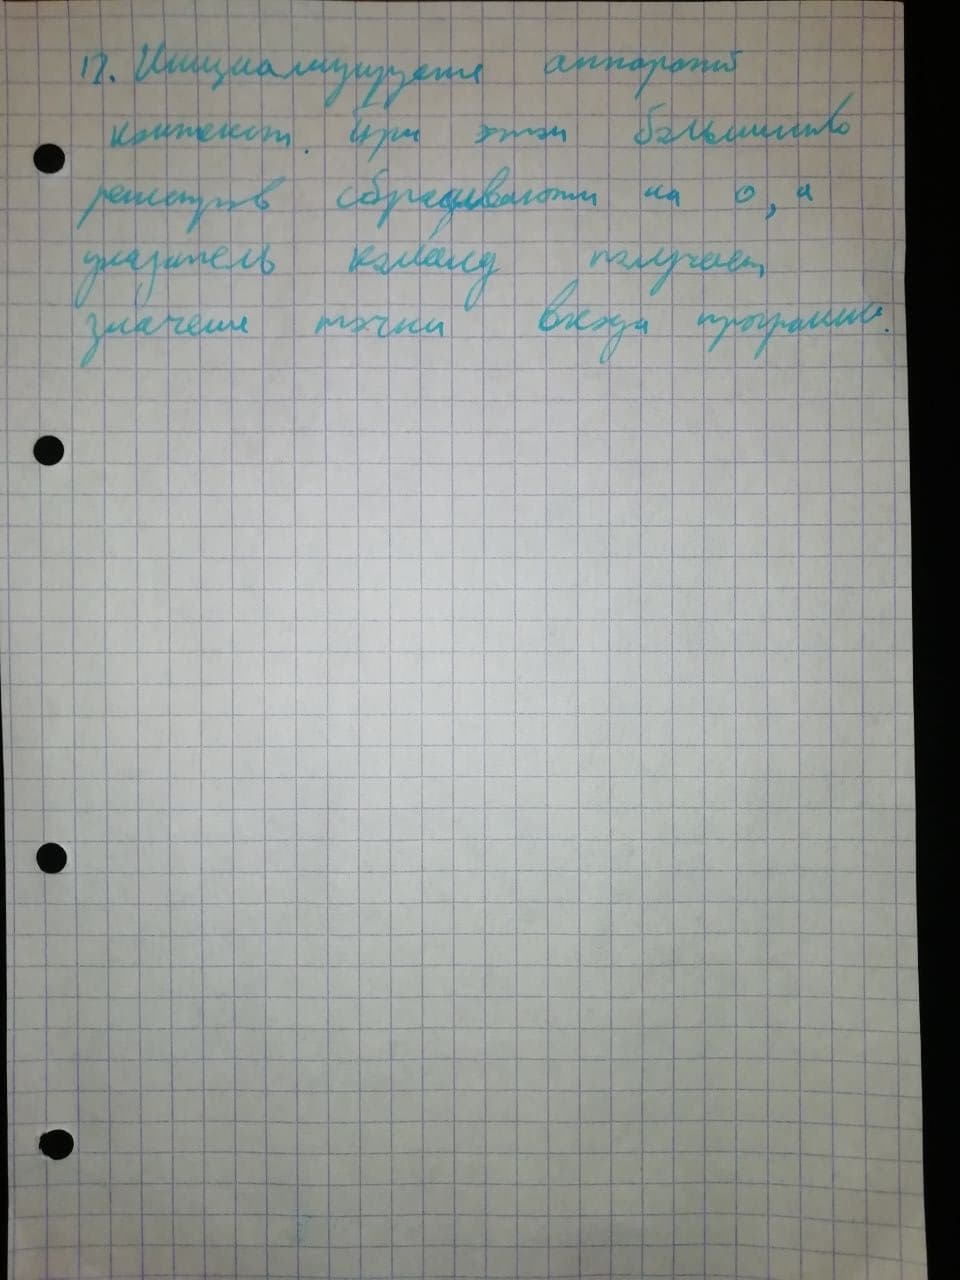 12. Инициализируется аппаратный
контекст. При этом большинство
регистров сбрасываются на 0, а
указатель команд получает
значение точки входа программы.